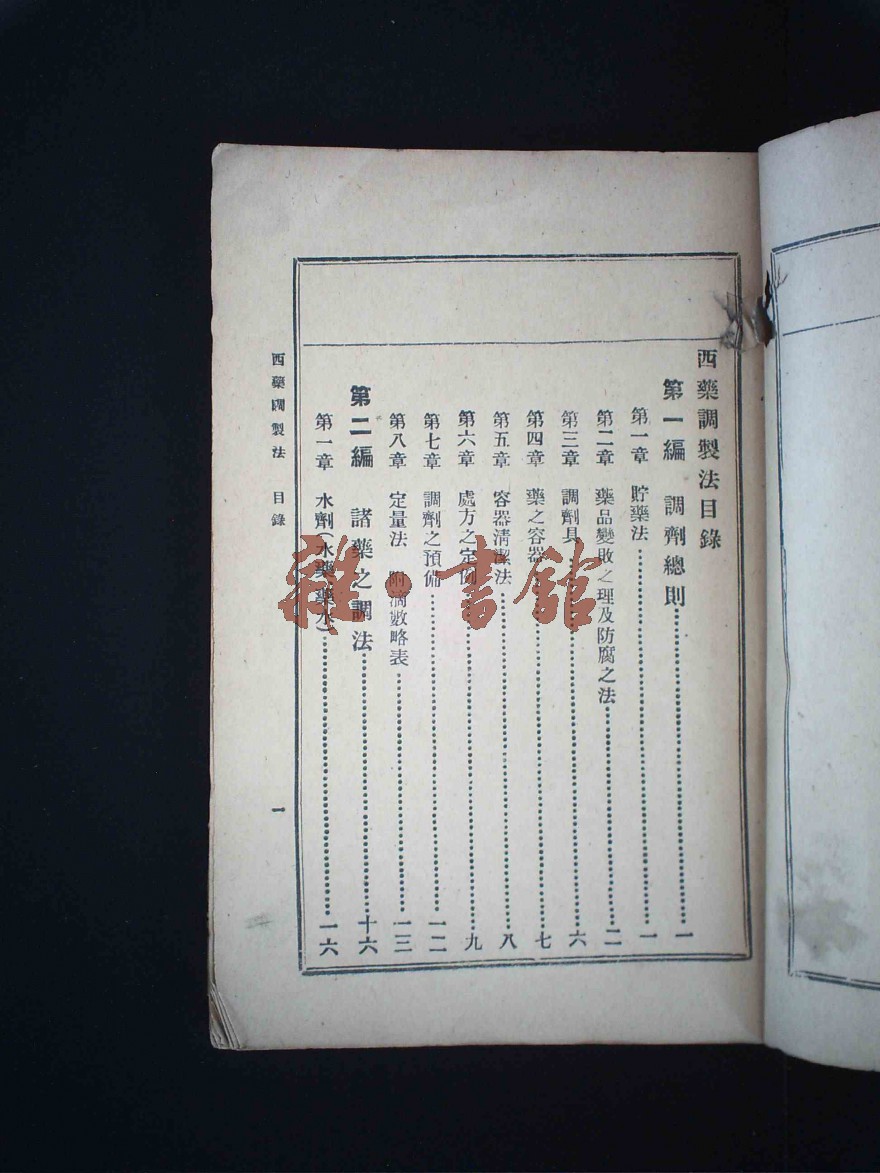 西藥調製法目錄
第一編　調劑總則……一
第一章　貯藥法……一
第二章　藥品變敗之理及防腐之法……二
第三章　調劑具……六
第四章　藥之容器……七
第五章　容器清潔法……八
第六章　處方之定例……九
第七章　調劑之預備……一二
第八章　定量法　附滴數略表……一三
第二編　諸藥之調法……十六
第一章　水劑(水藥藥水)……一六
西藥調製法　目錄　一
雜·書館